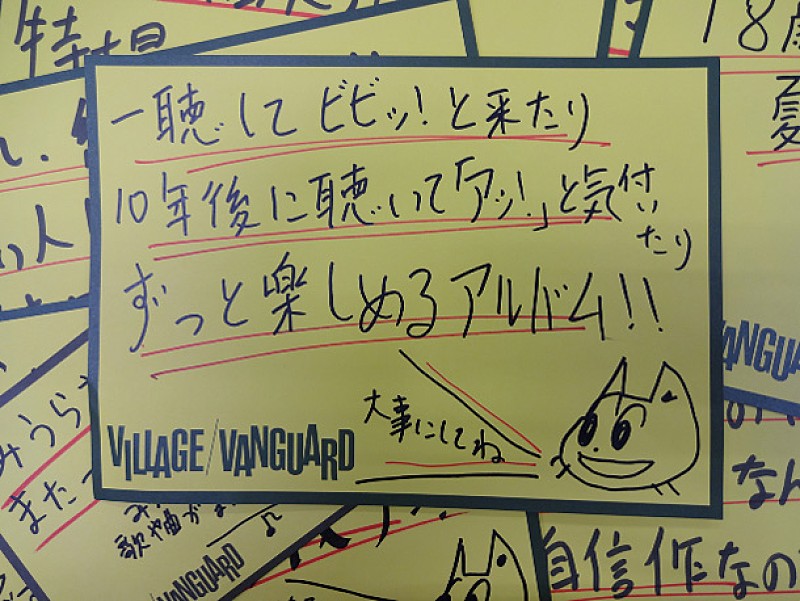 一聴してビビッ!と来たり
10年後に聴いて「アッ!」と気付いたり
ずっと楽しめるアルバム!!
大事にしてね
VILLAGE/VANGUARD
18歳
夏
VANGUA
の人
みうら
また
歌や曲が
VANGUARD
なん
自信作なの